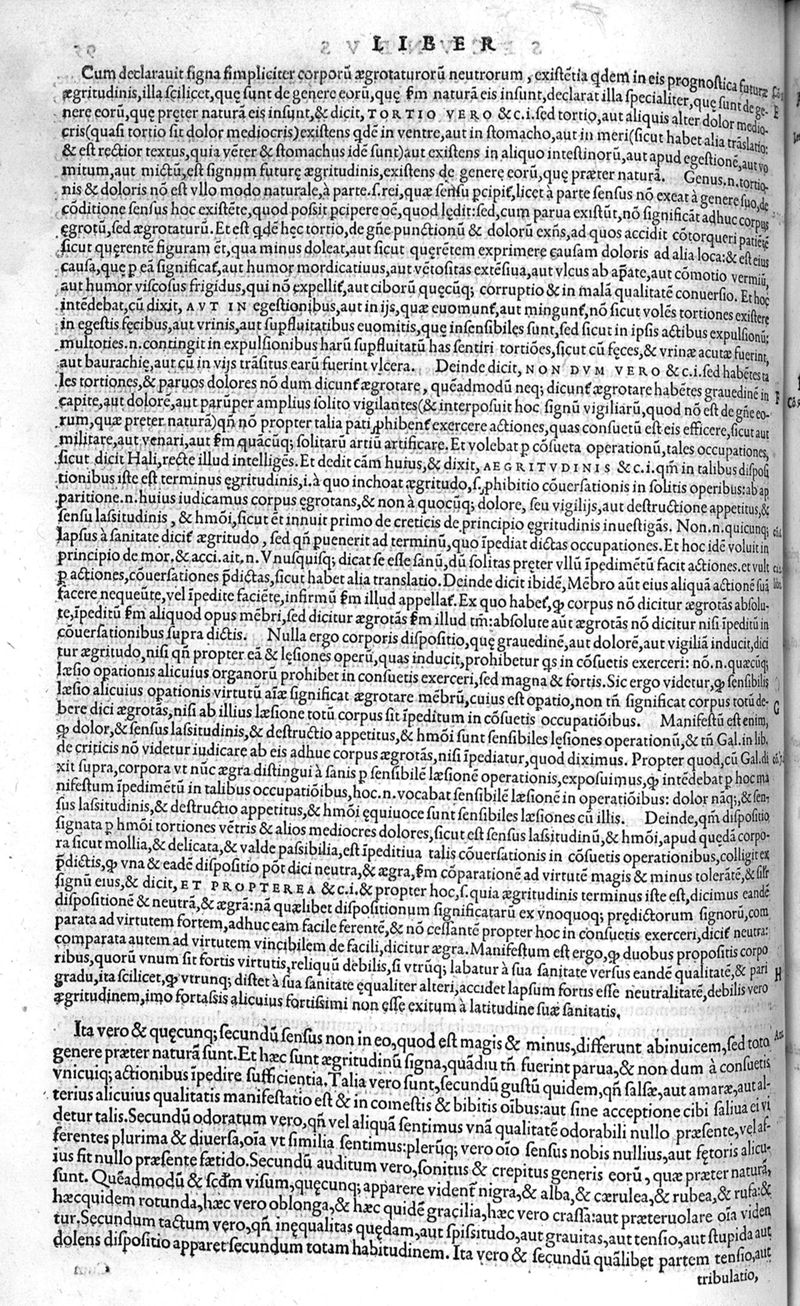 LIBER
Cum declarauit signa simpliciter corporū ægrotaturorū neutrorum, existētia qdem in eis prognostica futuræ
ægritudinis, illa scilicet, quę sunt de genere eorū, quę ſm naturā eis insunt, declarat illa specialiter, quę sunt de ge-
nere eorū, quę pręter naturā eis insunt, & dicit, TORTIO VERO &c.i. sed tortio, aut aliquis alter dolor medio-
cris (quasi tortio sit dolor mediocris) existens qdē in ventre, aut in stomacho, aut in meri (sicut habet alia trāslatio:
& est rectior textus, quia vēter & stomachus idē sunt) aut existens in aliquo intestinorū, aut apud egestionē, aut vo
mitum, aut mictū, est signum futurę ægritudinis, existens de genere eorū, quę præter naturā. Genus.n. tortio-
nis & doloris nō est vllo modo naturale, à parte.s.rei, quæ sensu pcipit, licet à parte sensus nō exeat à genere suo, de
cōditione sensus hoc existēte, quod possit pcipere oē, quod lędit: sed, cum parua existūt, nō significāt adhuc corpus
ęgrotū, sed ægrotaturū. Et est qdē hęc tortio, de gn̄e punctionū & dolorū exn̄s, ad quos accidit cōtorqueri patiētē
sicut quęrentē figuram ēt, qua minus doleat, aut sicut quęrētem exprimere causam doloris ad alia loca: & est eius
causa, quę p eā significat, aut humor mordicatiuus, aut vētositas extēsiua, aut vlcus ab apate, aut cōmotio vermiū,
aut humor viscosus frigidus, qui nō expellit, aut ciborū quęcūq; corruptio & in malā qualitatē conuersio. Et hoc
intēdebat, cū dixit, AVT IN egestionibus, aut in ijs, quæ euomunt, aut mingunt, nō sicut volēs tortiones existere
in egestis fęcibus, aut vrinis, aut supfluitatibus euomitis, que insensibiles sunt, sed sicut in ipsis actibus expulsionū:
multoties.n. contingit in expulsionibus harū supfluitatū has sentiri tortiōes, sicut cū fęces, & vrinæ acutæ fuerint,
aut baurachię, aut cū in vijs trāsitus earū fuerint vlcera. Deinde dicit, NON DVM VERO &c.i. sed habētes ta
les tortiones, & paruos dolores nō dum dicunt ægrotare, quēadmodū neq; dicunt ægrotare habētes grauedinē in
capite, aut dolorē, aut parūper amplius solito vigilantes (& interposuit hoc signū vigiliarū, quod nō est de gn̄e eo-
rum, quæ preter naturā) qn̄ nō propter talia pati, phibent exercere actiones, quas consuetū est eis efficere, sicut aut
militare, aut venari, aut ſm quācūq; solitarū artiū artificare. Et volebat p cōsueta operationū, tales occupationes,
sicut dicit Hali, recte illud intelligēs. Et dedit cām huius, & dixit, AEGRITVDINIS &c.i. qm̄ in talibus disposi
tionibus iste est terminus ęgritudinis, i. à quo inchoat ægritudo, s. phibitio cōuersationis in solitis operibus: ab ap
paritione.n. huius iudicamus corpus ęgrotans, & non à quocūq; dolore, seu vigilijs, aut destructione appetitus, &
sensu lassitudinis, & hmōi, sicut ēt innuit primo de creticis de principio ęgritudinis inuestigās. Non.n. quicunq;
lapsus à sanitate dicit ægritudo, sed qn̄ puenerit ad terminū, quo īpediat dictas occupationes. Et hoc idē voluit in
principio de mor. & acci. ait.n. Vnusquisq; dicat se esse sanū, dū solitas preter vllū īpedimētū facit actiones. et vult
p actiones, cōuersationes p̄dictas, sicut habet alia translatio. Deinde dicit ibidē, Mēbro aūt eius aliquā actionē suā
facere nequeūte, vel īpedite faciēte, infirmū ſm illud appellat. Ex quo habet, q corpus nō dicitur ægrotās absolu-
te, īpeditū ſm aliquod opus mēbri, sed dicitur ægrotās ſm illud tm̄: absolute aūt ægrotās nō dicitur nisi īpeditū in
cōuersationibus supra dictis. Nulla ergo corporis dispositio, quę grauedinē, aut dolorē, aut vigiliā inducit, dici
tur ægritudo, nisi qn̄ propter eā & lęsiones operū, quas inducit, prohibetur qs in cōsuetis exerceri: nō.n. quæcūq;
læsio opationis alicuius organorū prohibet in consuetis exerceri, sed magna & fortis. Sic ergo videtur, q sensibilis
læsio alicuius opationis virtutū aīæ significat ægrotare mēbrū, cuius est opatio, non tn̄ significat corpus totū de-
bere dici ægrotās, nisi ab illius læsione totū corpus sit īpeditum in cōsuetis occupatiōibus. Manifestū est enim,
q dolor, & sensus lassitudinis, & destructio appetitus, & hmōi sunt sensibiles lęsiones operationū, & tn̄ Gal. in lib.
de criticis nō videtur iudicare ab eis adhuc corpus ægrotās, nisi īpediatur, quod diximus. Propter quod, cū Gal. di
xit supra, corpora vt nūc ægra distingui à sanis p sensibilē læsionē operationis, exposuimus, q intēdebat p hoc ma
nifestum īpedimētū in talibus occupatiōibus, hoc.n. vocabat sensibilē læsionē in operatiōibus: dolor nāq;, & sen-
sus lassitudinis, & destructio appetitus, & hmōi ęquiuoce sunt sensibiles læsiones cū illis. Deinde, qm̄ dispositio
signata p hmōi tortiones vētris & alios mediocres dolores, sicut est sensus lassitudinū, & hmōi, apud quędā corpo-
ra sicut mollia, & delicata, & valde passibilia, est īpeditiua talis cōuersationis in cōsuetis operationibus, colligit ex
p̄dictis, q vna & eadē dispositio pōt dici neutra, & ægra, ſm cōparationē ad virtutē magis & minus tolerātē, & silr
signū eius, & dicit, ET PROPTEREA &c.i. & propter hoc, s. quia ægritudinis terminus iste est, dicimus eandē
dispositionē & neutrā, & ægrā: nā quælibet dispositionum significatarū ex vnoquoq; prędictorum signorū, com
parata ad virtutem fortem, adhuc eam facile ferentē, & nō cessantē propter hoc in consuetis exerceri, dicit neutra:
comparata autem ad virtutem vincibilem de facili, dicitur ægra. Manifestum est ergo, q duobus propositis corpo
ribus, quorū vnum sit fortis virtutis, reliquū debilis, si vtrūq; labatur à sua sanitate versus eandē qualitatē, & pari
gradu, ita scilicet, q vtrunq; distet à sua sanitate ęqualiter alteri, accidet lapsum fortis esse neutralitatē, debilis vero
ægritudinem, imo fortassis alicuius fortissimi non esse exitum à latitudine suæ sanitatis.
Ita vero & quęcunq; secundū sensus non in eo, quod est magis & minus, differunt abinuicem, sed toto
genere præter naturā sunt. Et hæc sunt ægritudinū signa, quādiu tn̄ fuerint parua, & non dum à consuetis
vnicuiq; actionibus īpedire sufficientia. Talia vero sunt, secundū gustū quidem, qn̄ salsæ, aut amaræ, aut al-
terius alicuius qualitatis manifestatio est & in comestis & bibitis oībus: aut sine acceptione cibi saliua ei vi
detur talis. Secundū odoratum vero, qn̄ vel aliquā sentimus vnā qualitatē odorabili nullo præsente, vel af-
ferentes plurima & diuersa, oīa vt similia sentimus: plerūq; vero oīo sensus nobis nullius, aut fętoris alicu-
ius fit nullo præsente fætido. Secundū auditum vero, sonitus & crepitus generis eorū, quæ præter naturā,
sunt. Quēadmodū & scdm visum, quęcunq; apparere vident nigra, & alba, & cærulea, & rubea, & rufa: &
hæcquidem rotunda, hæc vero oblonga, & hæc quidē gracilia, hæc vero crassa: aut præteruolare oīa viden
tur. Secundum tactum vero, qn̄ inęqualitas quędam, aut spissitudo, aut grauitas, aut tensio, aut stupida aut
dolens dispositio apparet secundum totam habitudinem. Ita vero & secundū quālibet partem tensio, aut
tribulatio,